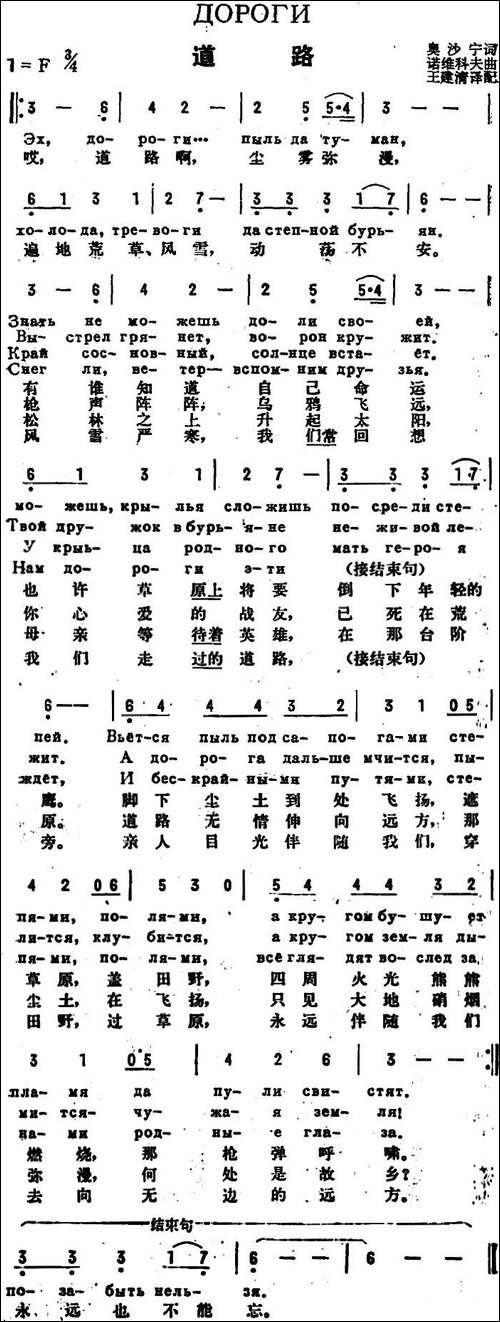 ДОРОГИ
道 路
1=F 3/4
奥沙宁词
诺维科夫曲
王建清译配
3 — 6 | 4 2 — | 2 5 5·4 | 3 — — |
Эх, до- ро- ги… пыль да ту- ман,
哎, 道 路啊, 尘 雾弥 漫,
6 1 3 1 | 2 7 — | 3 3 3 1 7 | 6 — — |
хо-ло-да, тре-во-ги да степ-ной бурь- ян.
遍地荒草、风雪, 动 荡不 安。
3 — 6 | 4 2 — | 2 5 5·4 | 3 — — |
Знать не мо- жешь до- ли сво- ей,
Вы- стрел гря- нет, во- рон кру- жит.
Край сос- нов- ный, сол- нце вста- ёт.
Снег ли, ве- тер— вспом- ним дру- зья.
有 谁 知道 自己 命 运
枪 声 阵阵, 乌鸦 飞 远,
松 林 之上 升起 太 阳,
风 雪 严寒, 我们常回 想
6 1 3 1 | 2 7 — | 3 3 3 1 7 |
мо- жешь, кры- лья сло- жишь по- сре- ди сте-
Твой дру- жок в бурь- я- не не- жи- вой ле-
У крыь- ца род- но- го мать ге- ро- я
Нам до- ро- ги э- ти (接结束句)
也许草原上将要 倒下年轻的
你心爱的战友, 已死在荒
母亲等待着英雄, 在那台阶
我们走过的道路, (接结束句)
6 — — | 6 4 4 4 3 2 | 3 1 0 5 |
пей. Вьёт-ся пыль под са- по- га- ми сте-
жит. А до- ро- га даль- ше мчит-ся, пы-
ждёт, И бес- край- ны- ми пу- тя- ми, сте-
鹰。 脚下尘土到处飞扬, 遮
原。 道路无情伸向远方, 那
旁。 亲人目光伴随我们, 穿
4 2 0 6 | 5 3 0 | 5 4 4 4 3 2 |
пя- ми, по- ля- ми, а кру- гом бу- шу- ет
лит-ся, клу- бит-ся, а кру- гом зем- ля ды-
пя- ми, по- ля- ми, всё гля- дят во- след за
草原,盖田野, 四周火光熊熊
尘土,在飞扬, 只见大地硝烟
田野,过草原, 永远伴随我们
3 1 0 5 | 4 2 6 | 3 — — :|
пла- мя да пу- ли сви- стят.
мит-ся- чу- жа- я зем- ля!
на- ми род- ны- е гла- за.
燃烧, 那 枪弹呼 啸。
弥漫, 何 处是故 乡?
去向 无 边的远 方。
结束句
3 3 3 1 7 | 6 — — | 6 — —
по- за- быть нель- зя.
永 远也不能 忘。